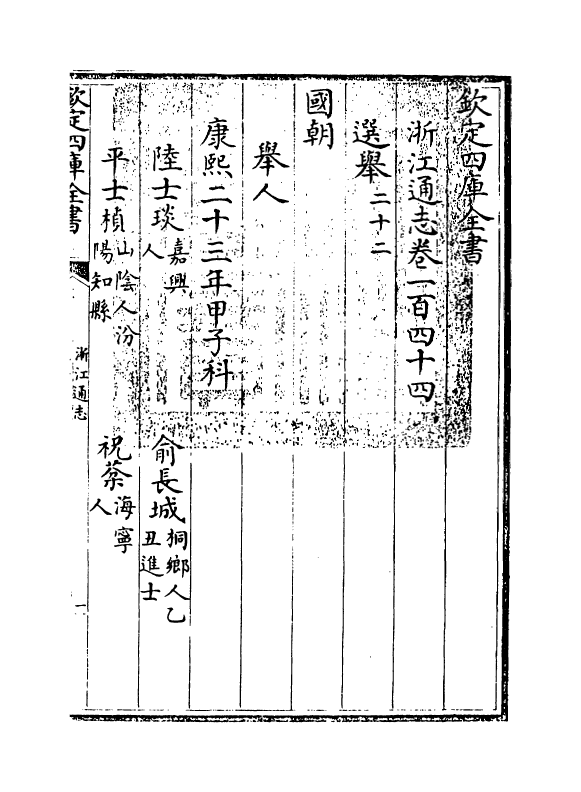 欽定四庫全書
浙江通志卷一百四十四
選舉二十二
國朝
舉人
康熙二十三年甲子科
陸士琰嘉興人
俞長城桐鄉人乙丑進士
平士楨山陰人汾陽知縣
祝棻海寧人
欽定四庫全書
浙江通志
一